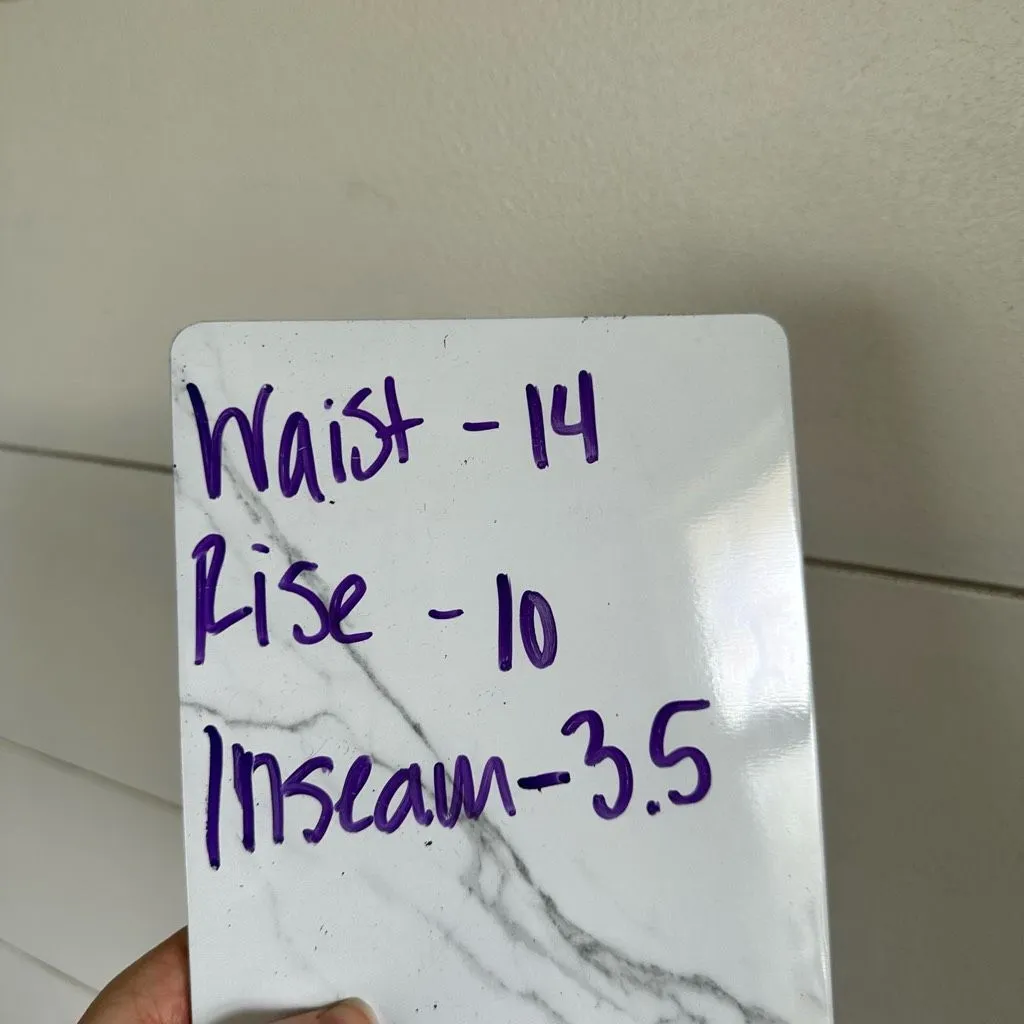 Waist - 14
Rise - 10
Inseam - 3.5